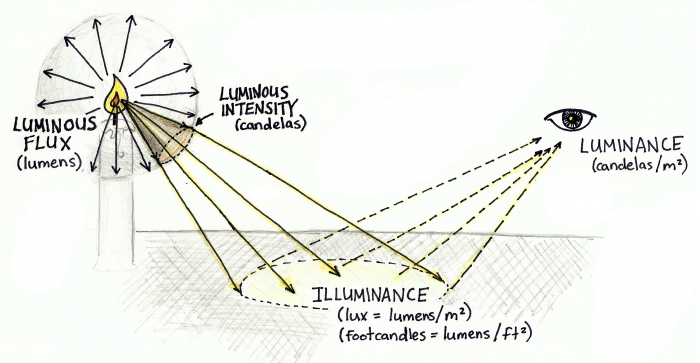 LUMINOUS
FLUX
(lumens)
LUMINOUS
INTENSITY
(candelas)
LUMINANCE
(candelas/m²)
ILLUMINANCE
(lux = lumens/m²)
(footcandles = lumens/ft²)